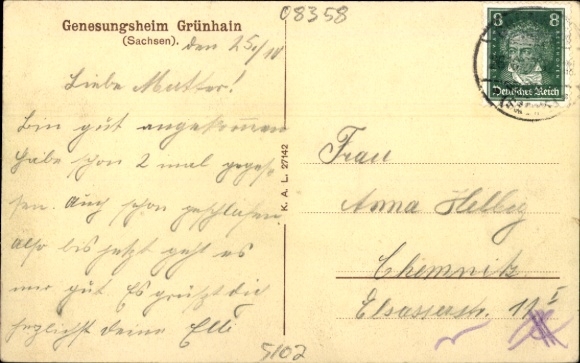 08358
Genesungsheim Grünhain
(Sachsen).
den 25./10
Liebe Mutter!
Bin gut angekommen
habe schon 2 mal geges-
sen. Auch schon geschlafen.
Also bis jetzt geht es
mir gut. Es grüßt dich
herzlichst deine Elli
K. A. L. 27142
8 8
Deutsches Reich
Frau
Anna Helbig
Chemnitz
Elsasserstr. 11 I
5102